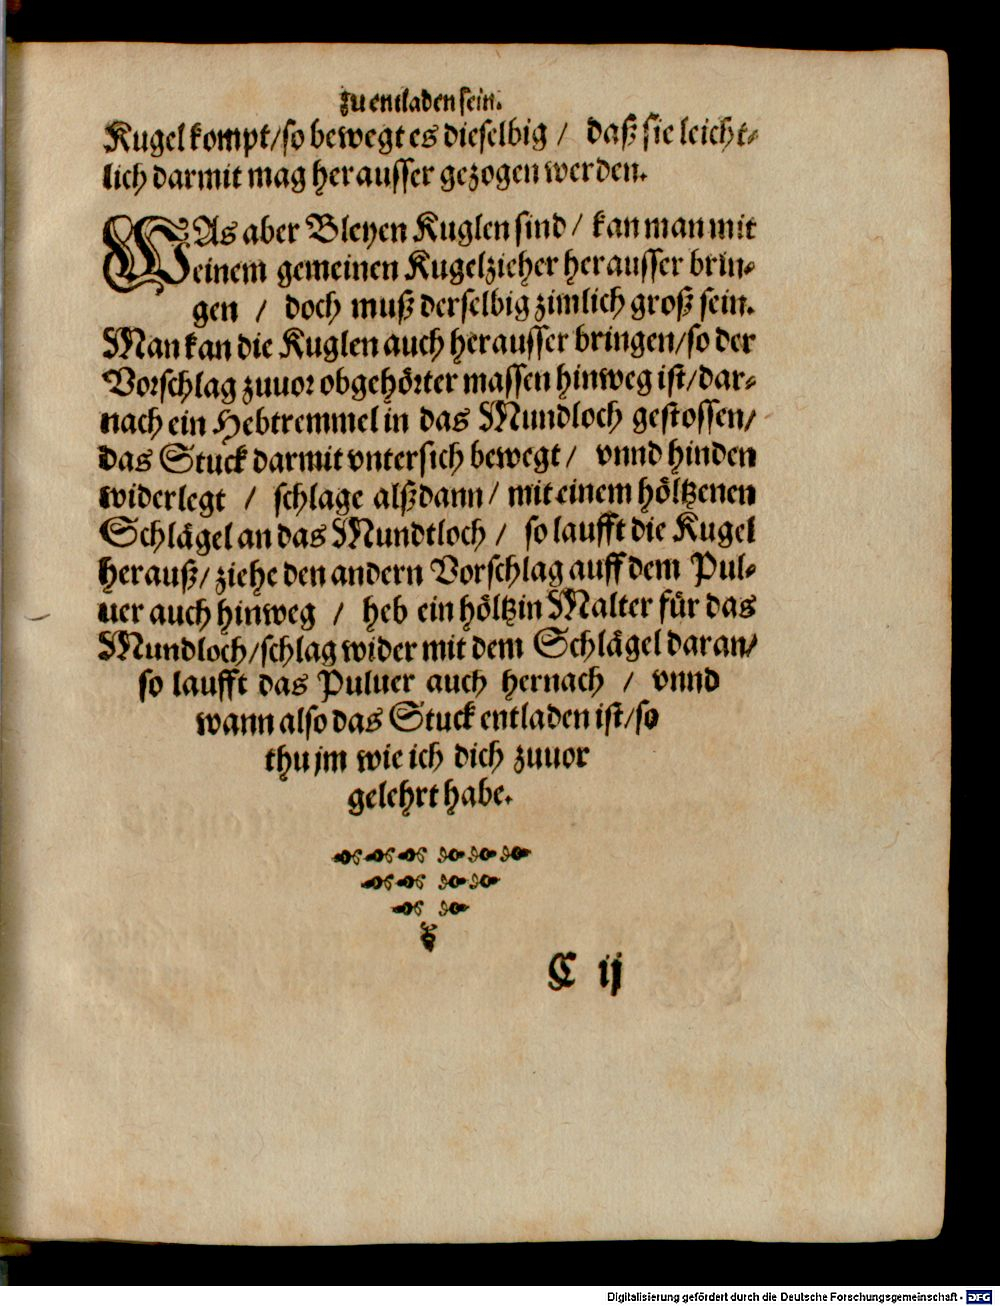 zu entladen sein.
Kugel kompt/so bewegt es dieselbig / daß sie leicht-
lich darmit mag herausser gezogen werden.
WAs aber Bleyen Kuglen sind / kan man mit
einem gemeinen Kugelzieher herausser brin-
gen / doch muß derselbig zimlich groß sein.
Man kan die Kuglen auch herausser bringen/so der
Vorschlag zuuor obgehörter massen hinweg ist/dar-
nach ein Hebtremmel in das Mundloch gestossen/
das Stuck darmit vntersich bewegt / vnnd hinden
widerlegt / schlage alßdann / mit einem höltzenen
Schlägel an das Mundtloch / so laufft die Kugel
herauß/ ziehe den andern Vorschlag auff dem Pul-
uer auch hinweg / heb ein höltzin Malter für das
Mundloch/schlag wider mit dem Schlägel daran/
so laufft das Puluer auch hernach / vnnd
wann also das Stuck entladen ist/so
thu jm wie ich dich zuuor
gelehrt habe.
C ij
Digitalisierung gefördert durch die Deutsche Forschungsgemeinschaft - DFG